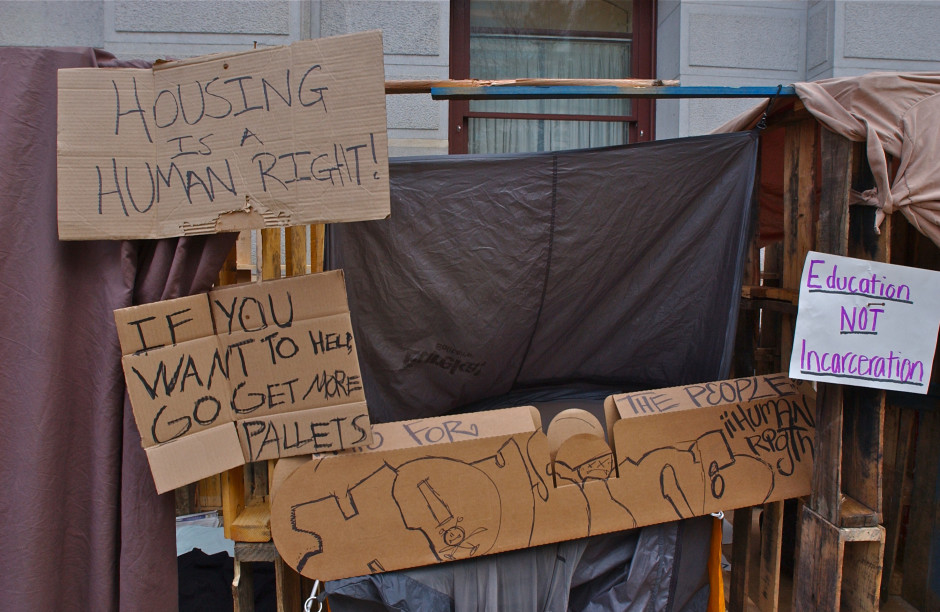 HOUSING
IS A
HUMAN RIGHT!
IF YOU
WANT TO HELP,
GO GET MORE
PALLETS
Education
NOT
Incarceration
FOR
THE PEOPLE
HUMAN